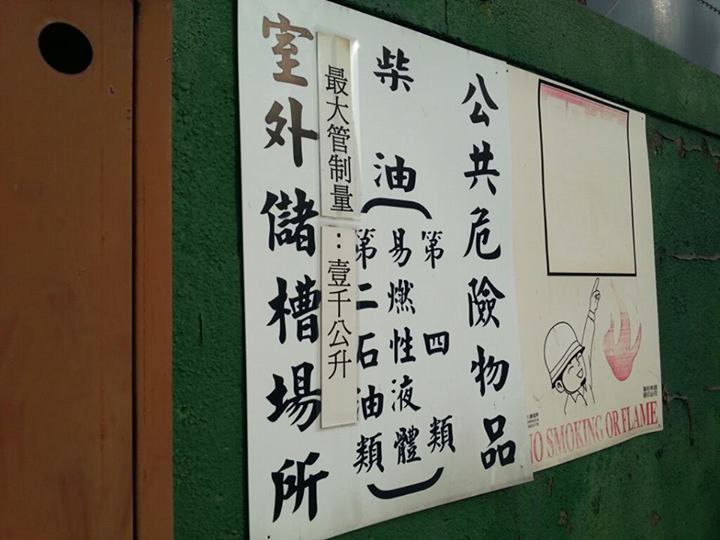 公共危險物品
柴油
（第四類
易燃性液體
第二石油類）
最大管制量
：壹千公升
室外儲槽場所
NO SMOKING OR FLAME